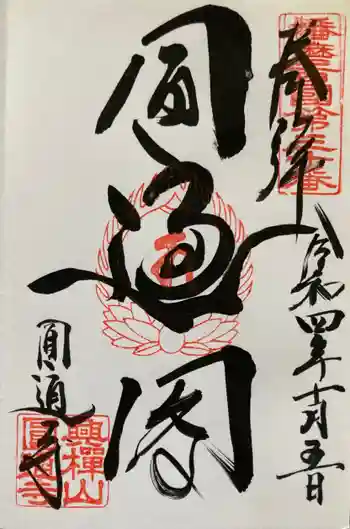 奉拝
播磨西国第三十番
令和四年十一月五日
圓通閣
圓通寺
興禅山
圓通寺